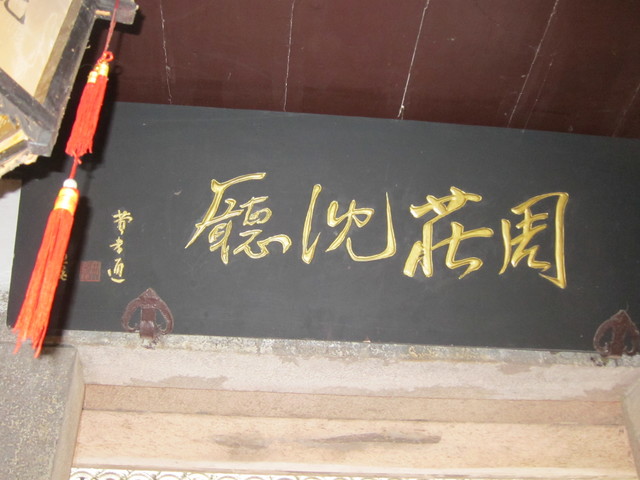 周莊沈廳
費孝通